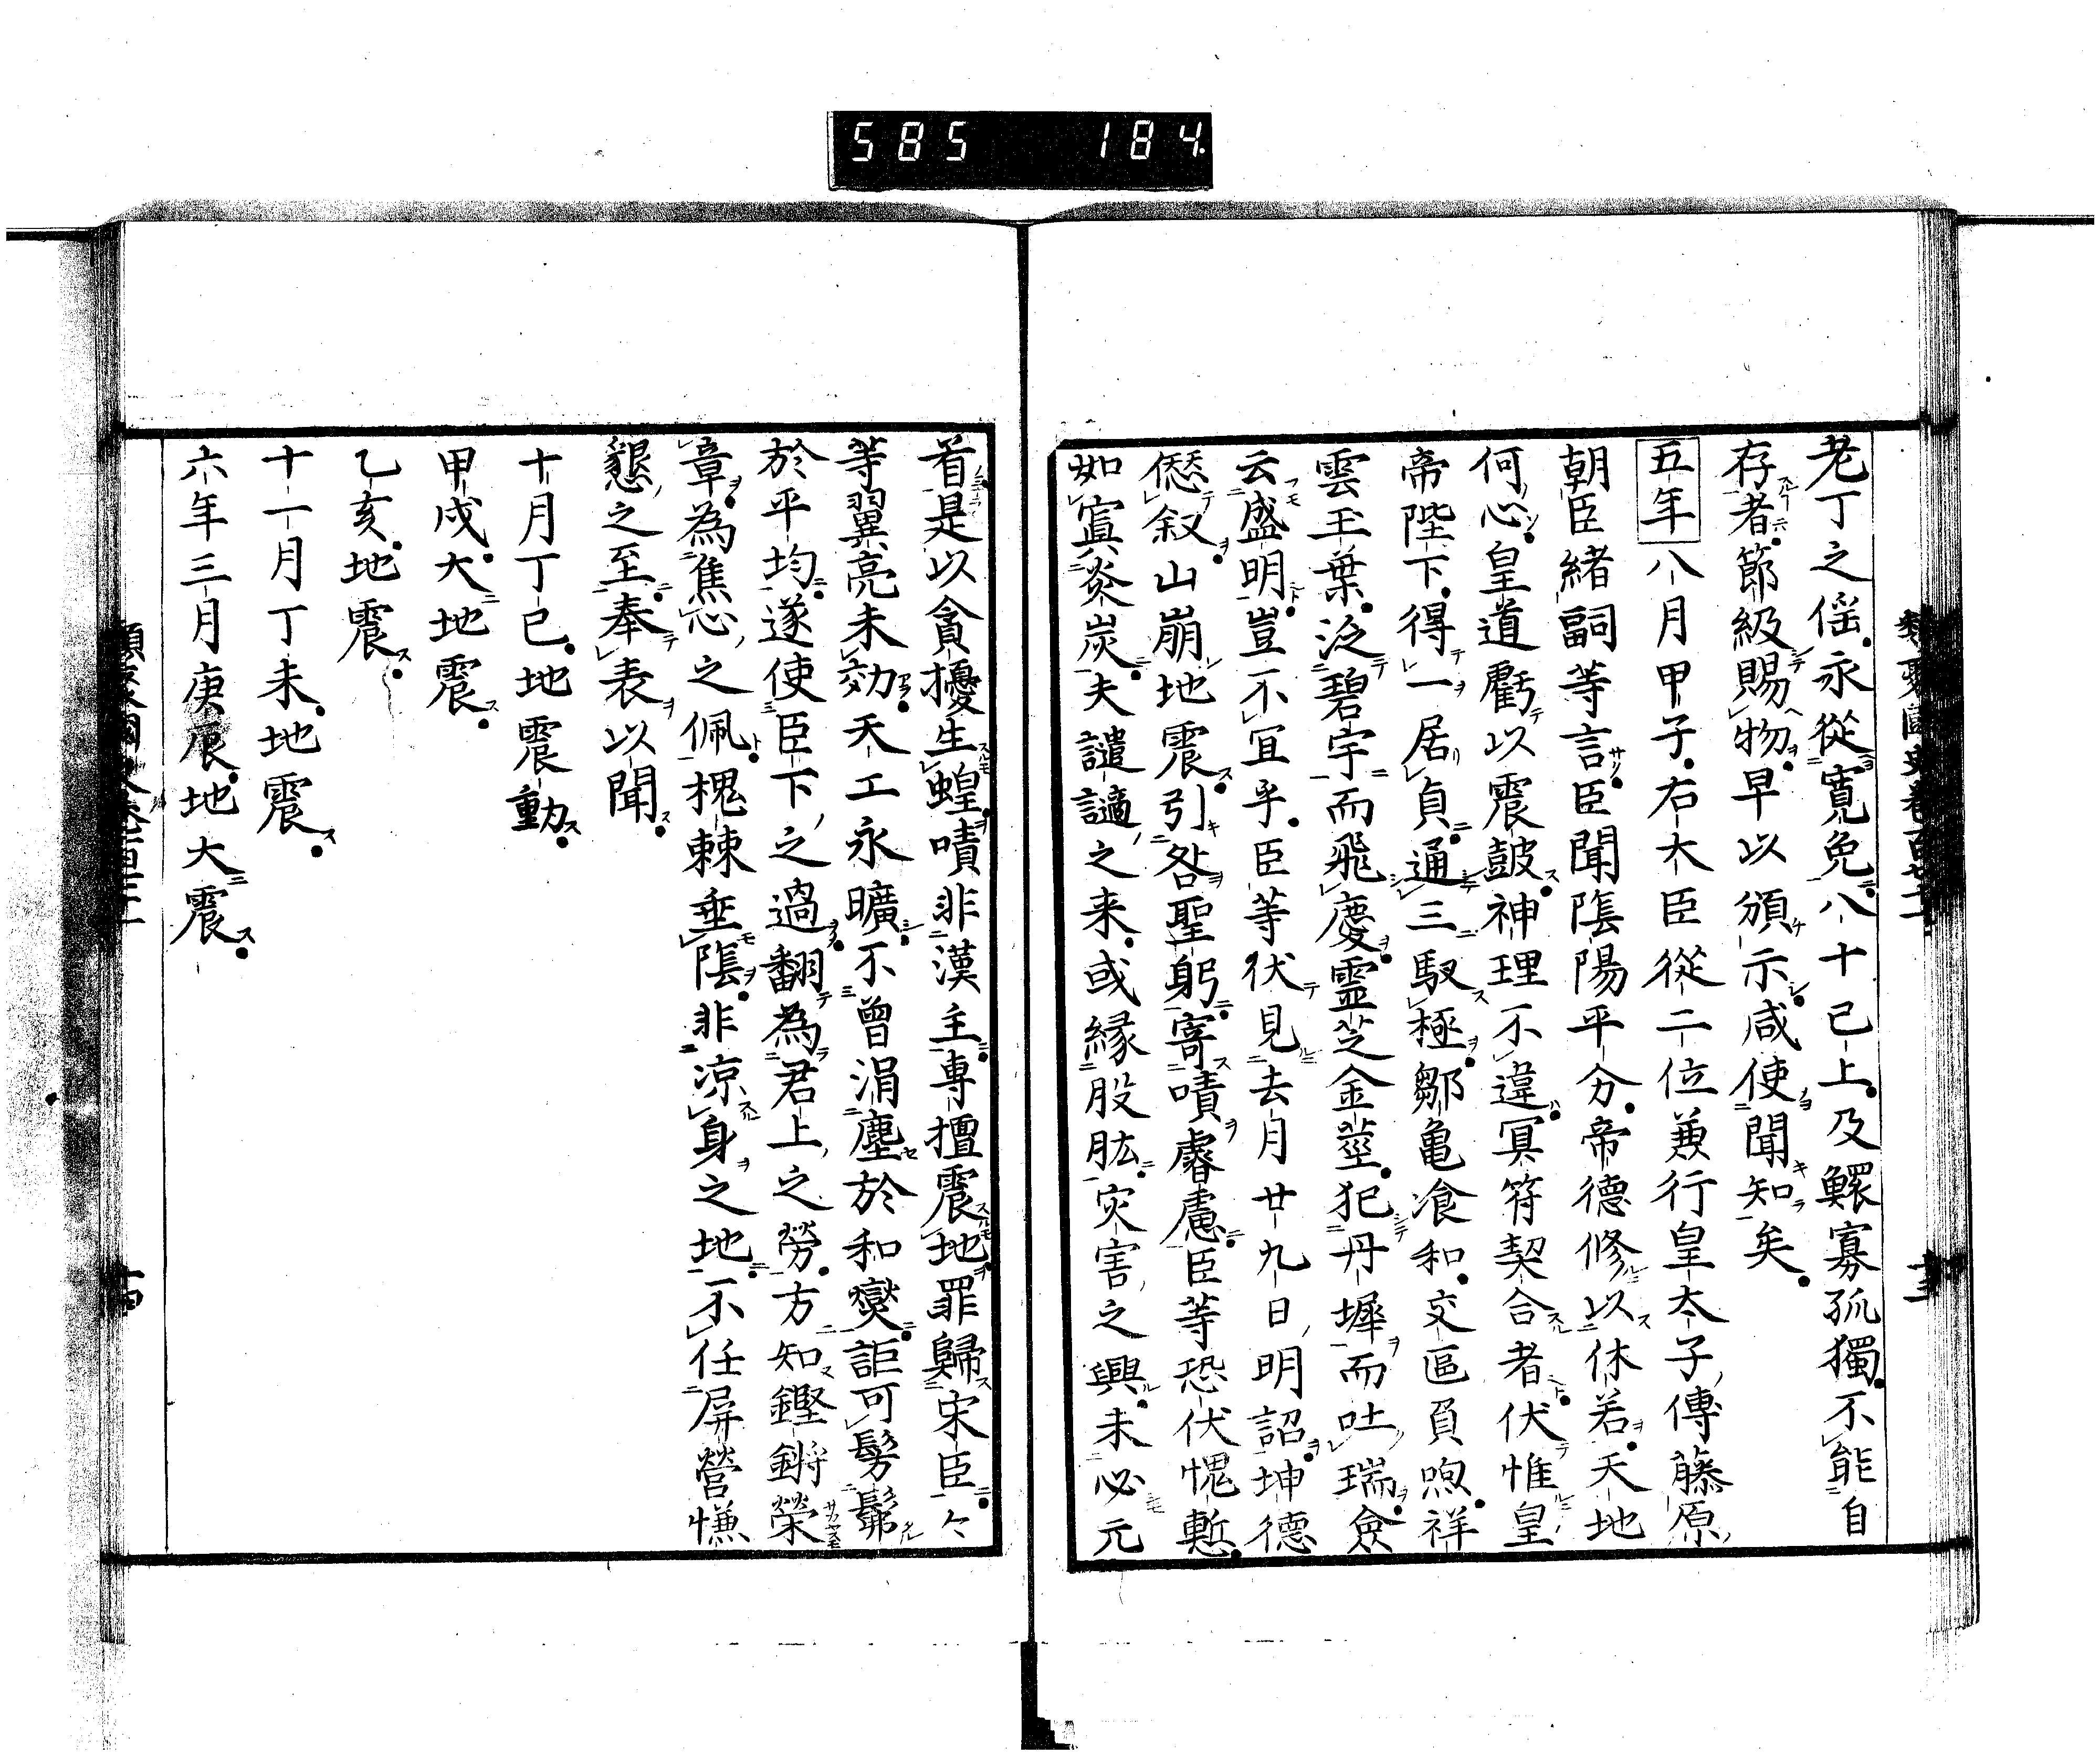 585 184
類聚國史巻百七十一
十三
老丁之徭永從寛免八十已上及鰥寡孤獨不能自
存者節級賜物早以頒示咸使聞知矣
五年八月甲子右大臣從二位兼行皇太子傳藤原
朝臣緒嗣等言臣聞陰陽平分帝德修以休若天地
何心皇道虧以震皷神理不違冥符契合者伏惟皇
帝陛下得一居貞通三馭極鄒亀飡和交區負煦祥
雲玉葉泛碧宇而飛慶霊芝金莖犯丹墀而吐瑞僉
云盛明豈不宜乎臣等伏見去月廿九日明詔坤德
愆叙山崩地震引咎聖躬寄嘖睿慮臣等恐伏愧慙
如寘炎炭夫譴謫之来或縁股肱灾害之興未必元
首是以貪擾生蝗嘖非漢主專擅震地罪歸宋臣々
等翼亮未効天工永曠不曽涓塵於和燮詎可髣髴
於平均遂使臣下之過翻為君上之勞方知鏗鏘榮
章為焦心之佩槐棘垂陰非凉身之地不任屏營慊
懇之至奉表以聞
十月丁巳地震動
甲戌大地震
乙亥地震
十一月丁未地震
六年三月庚辰地大震
十四